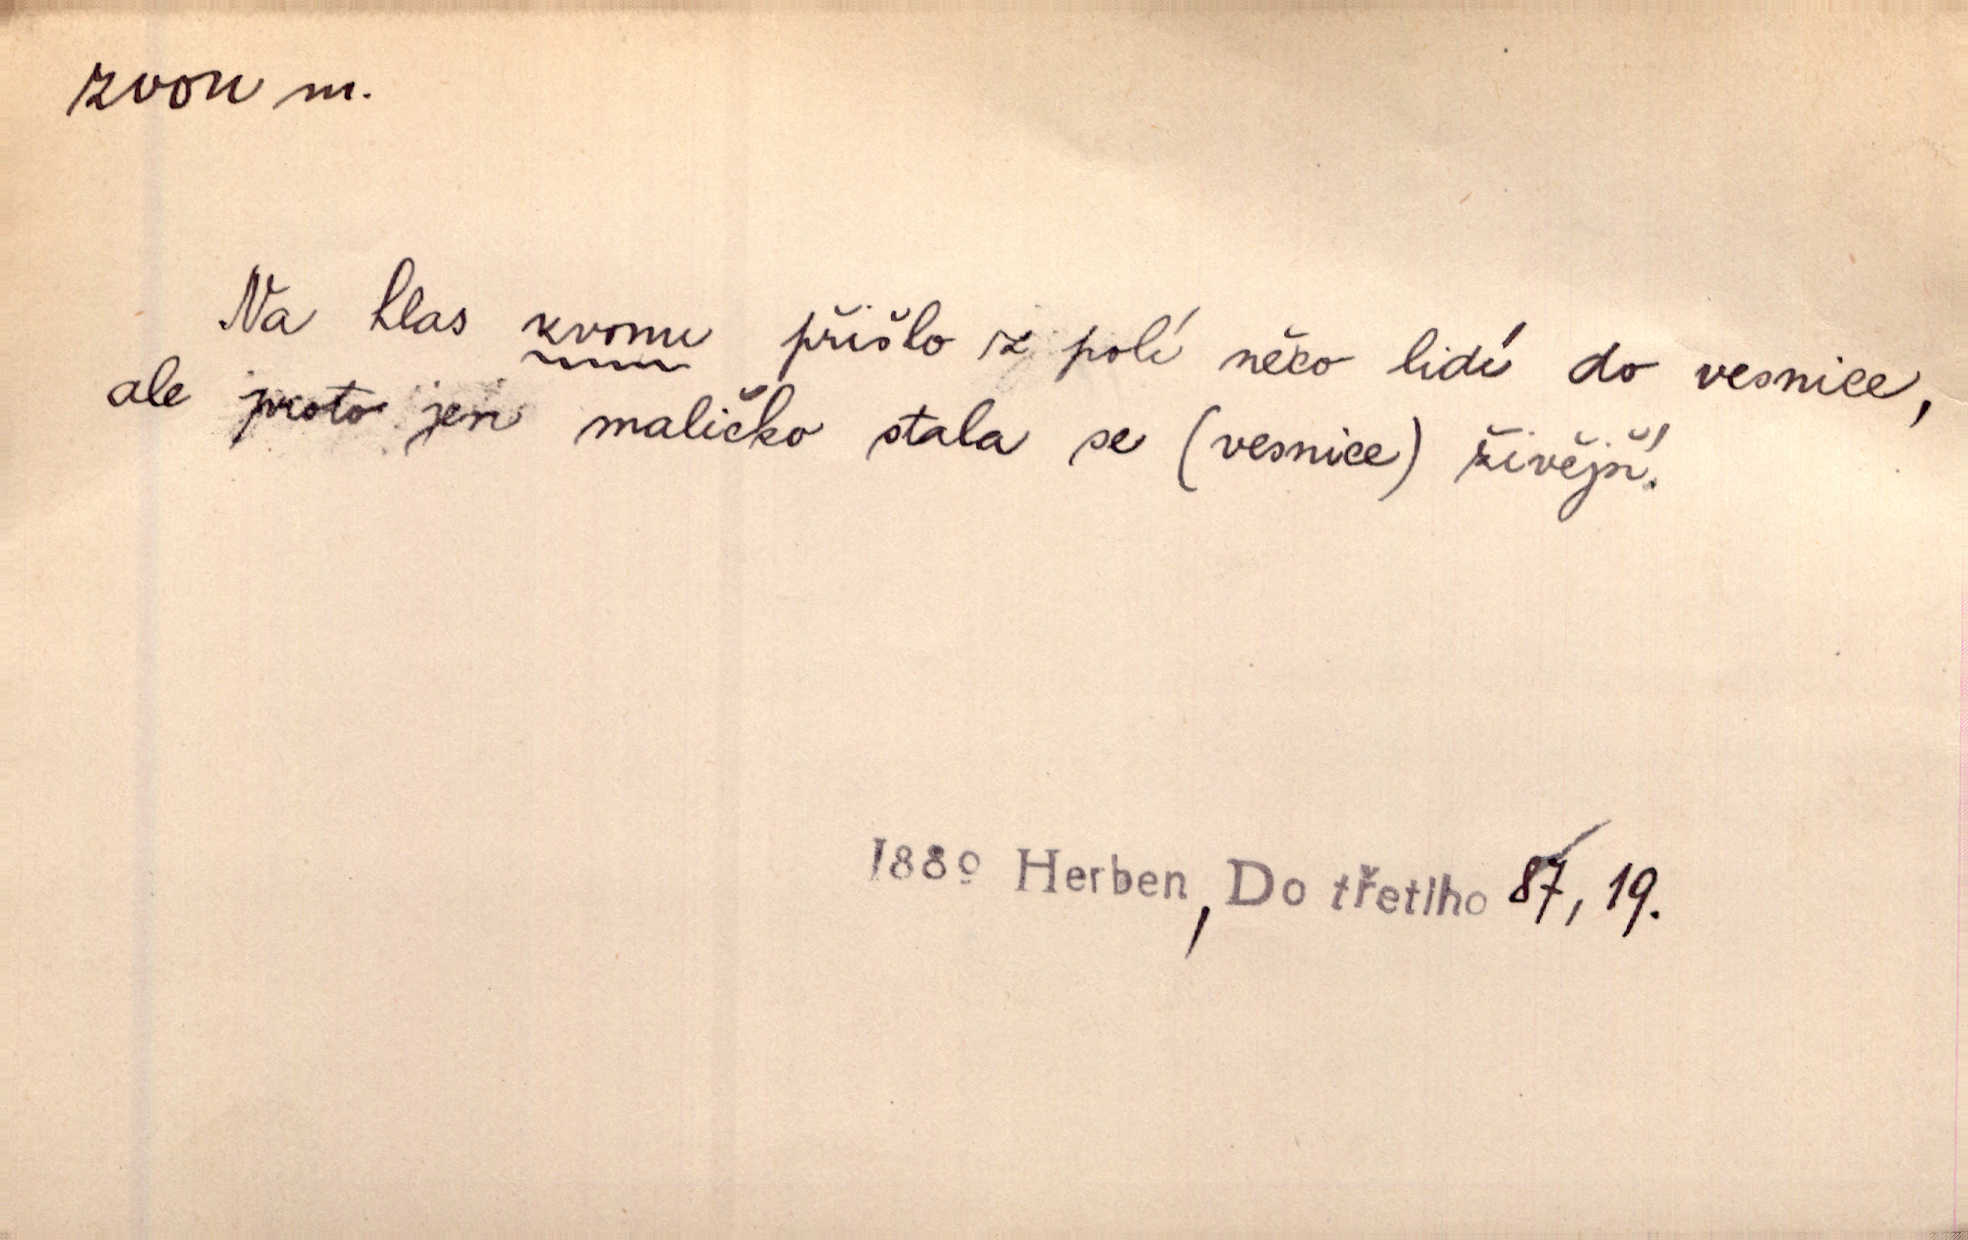 zvon m.
Na hlas zvonu přišlo z polí něco lidí do vesnice,
ale proto jen maličko stala se (vesnice) živější.
1889 Herben, Do třetího 87, 19.